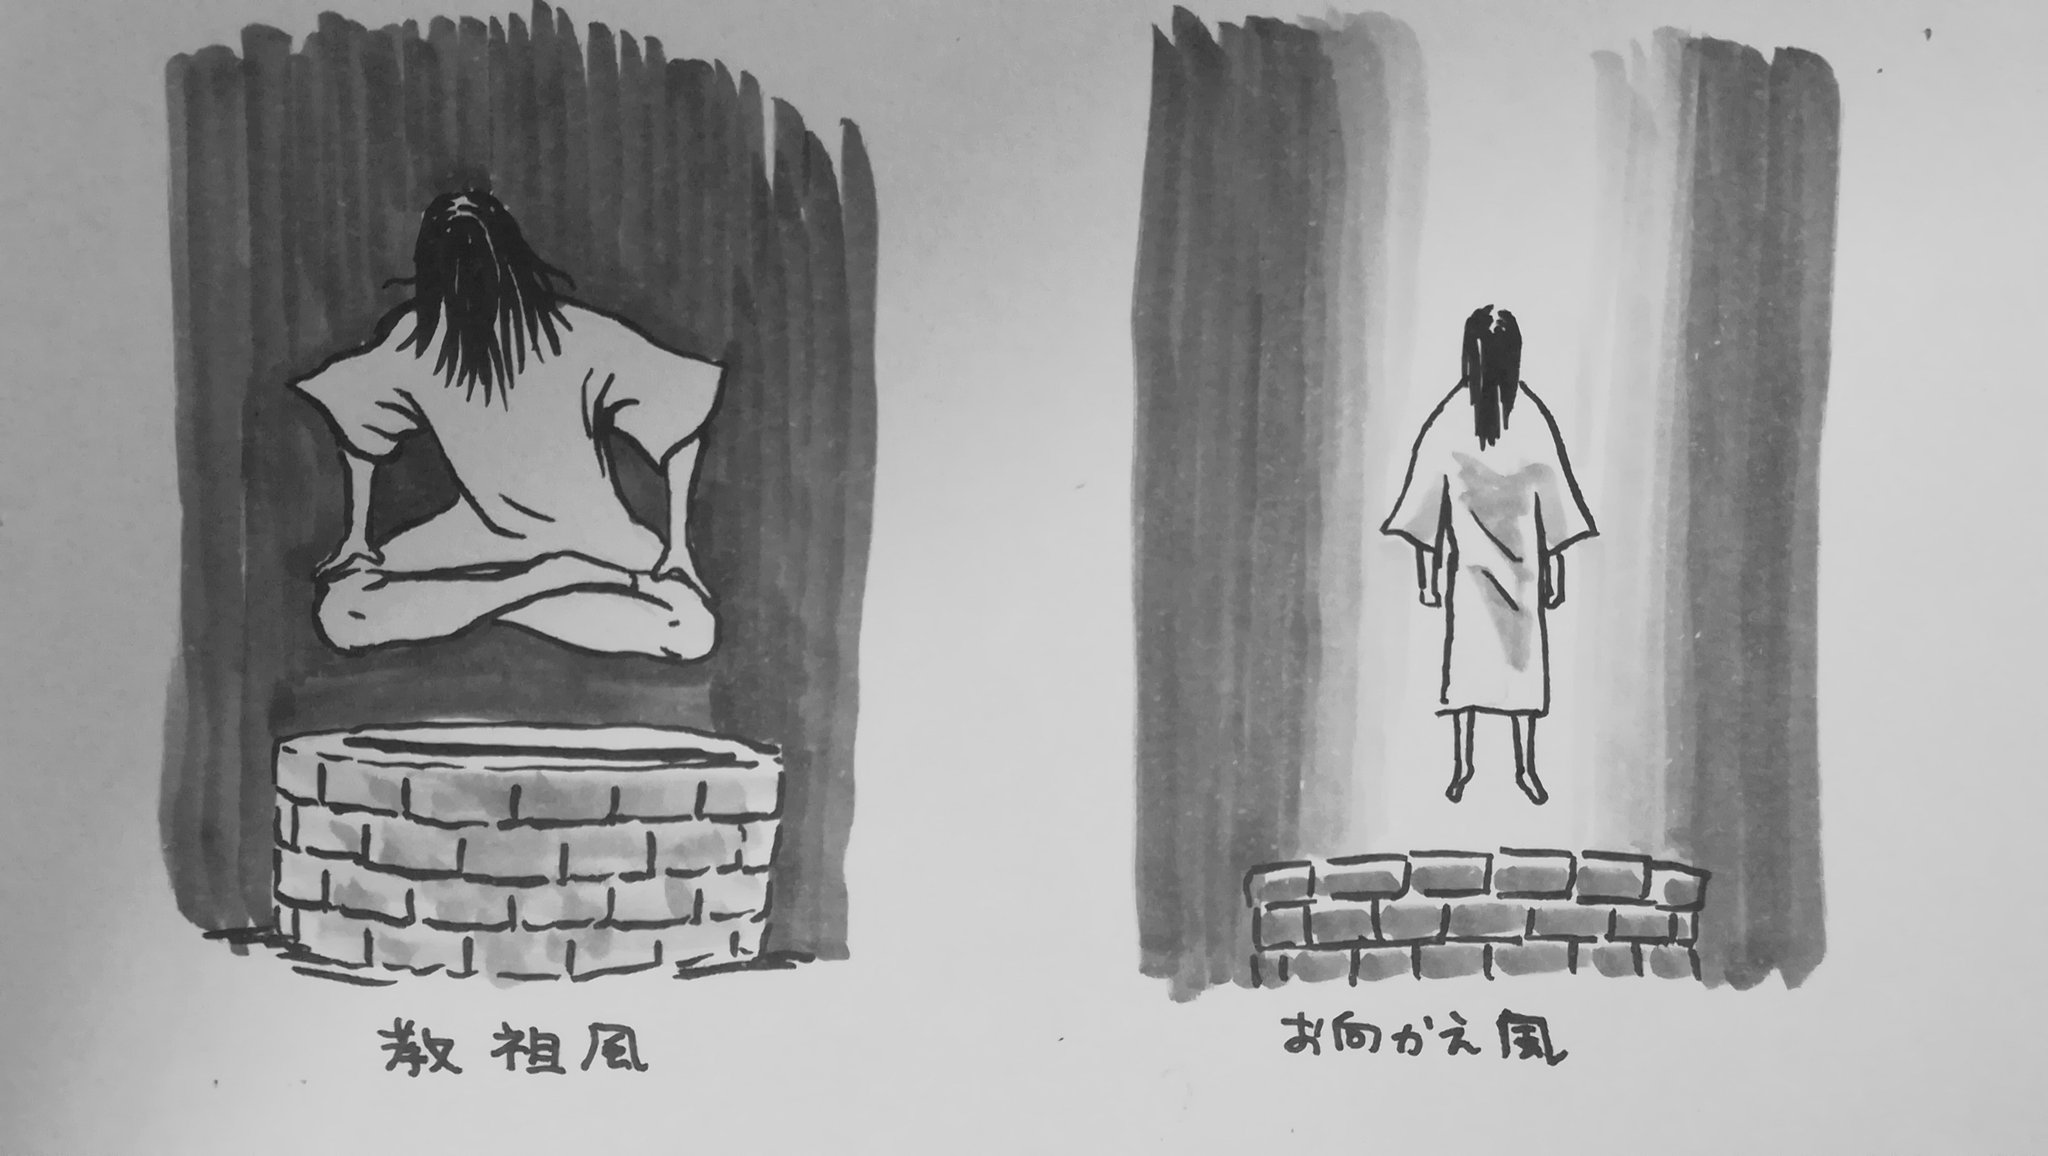 教祖風
お向かえ風